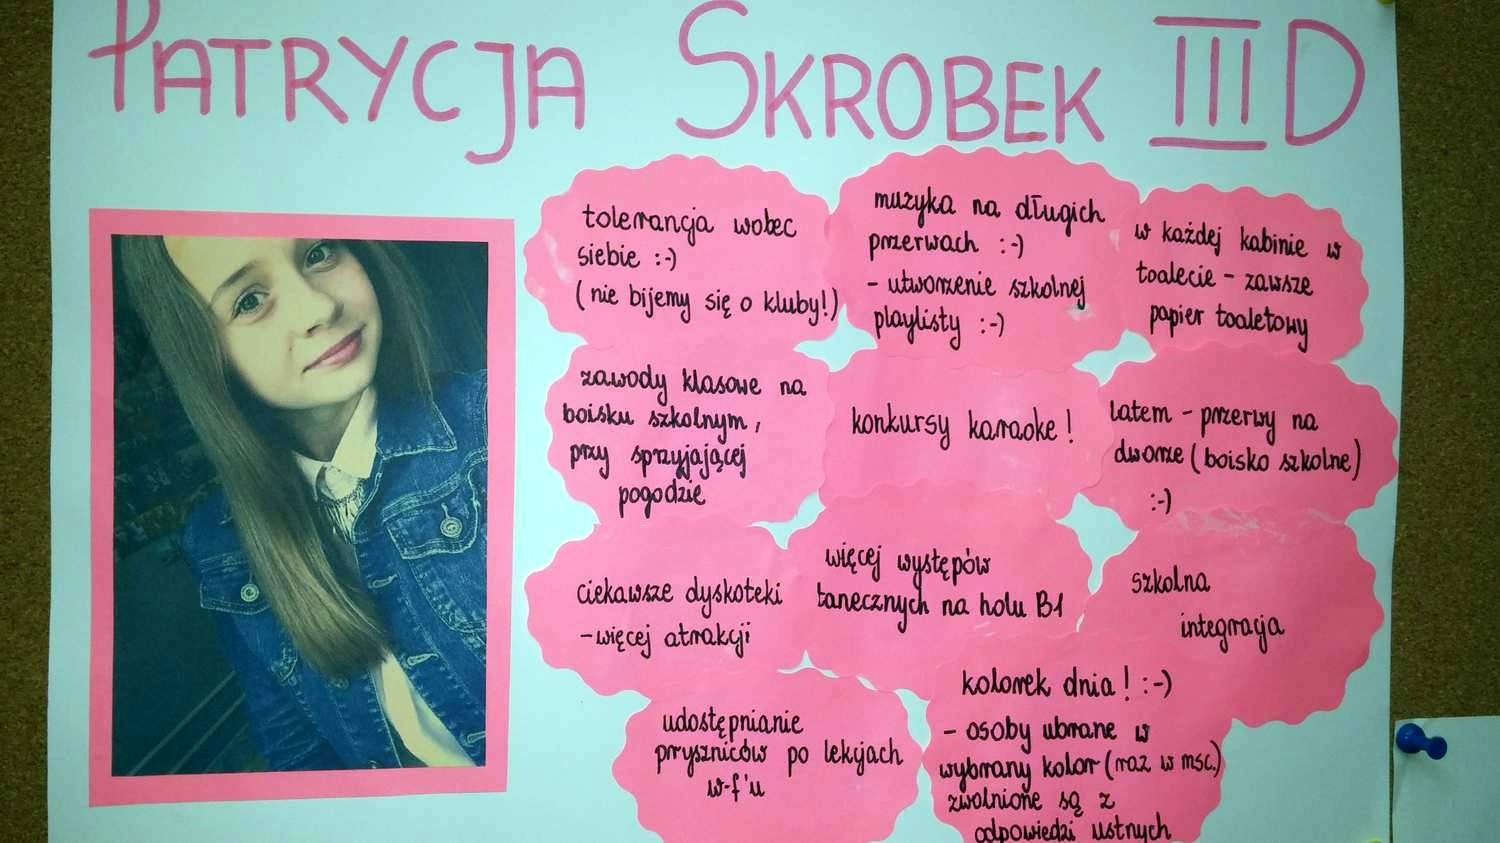 PATRYCJA SKROBEK III D
tolerancja wobec
siebie :-)
(nie bijemy się o kluby!)
muzyka na długich
przerwach :-)
- utworzenie szkolnej
playlisty :-)
w każdej kabinie w
toalecie - zawsze
papier toaletowy
zawody klasowe na
boisku szkolnym,
przy sprzyjającej
pogodzie
konkursy karaoke!
latem - przerwy na
dworze (boisko szkolne)
:-)
ciekawsze dyskoteki
-więcej atrakcji
więcej występów
tanecznych na holu B1
szkolna
integracja
udostępnianie
pryszniców po lekcjach
w-f'u
kolorek dnia! :-)
- osoby ubrane w
wybrany kolor (raz w msc.)
zwolnione są z
odpowiedzi ustnych